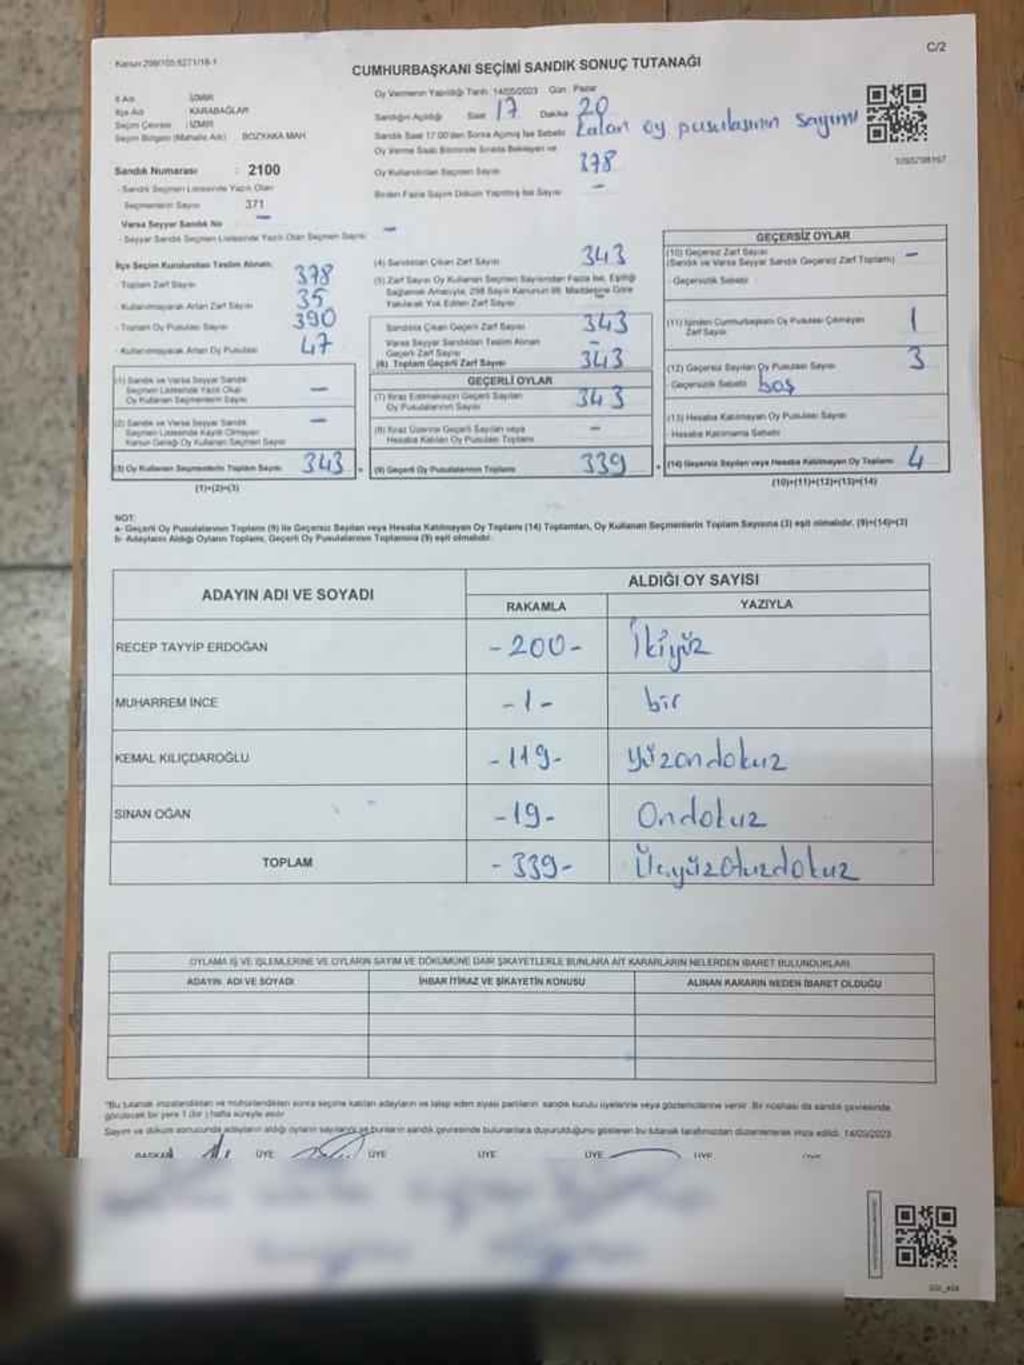 C/2
CUMHURBAŞKANI SEÇİMİ SANDIK SONUÇ TUTANAĞI
İl Adı İZMİR
İlçe Adı KARABAĞLAR
Seçim Çevresi : İZMİR
Seçim Bölgesi (Mahalle Adı) BOZYAKA MAH
Sandık Numarası : 2100
- Sandık Seçmen Listesinde Yazılı Olan
Seçmenlerin Sayısı 371
Varsa Seyyar Sandık No —
- Seyyar Sandık Seçmen Listesinde Yazılı Olan Seçmen Sayısı —
Oy Vermenin Yapıldığı Tarih 14/05/2023 Gün Pazar
Sandığın Açıldığı Saat 17 Dakika 20
Sandık Saat 17:00'den Sonra Açılmış İse Sebebi Kalan oy pusulasının sayımı
Oy Verme Saati Bitiminde Sırada Bekleyen ve
Oy Kullandırılan Seçmen Sayısı 378
Birden Fazla Sayım Döküm Yapılmış İse Sayısı —
İlçe Seçim Kurulundan Teslim Alınan;
- Toplam Zarf Sayısı 378
- Kullanılmayarak Artan Zarf Sayısı 35
- Toplam Oy Pusulası Sayısı 390
- Kullanılmayarak Artan Oy Pusulası 47
(1) Sandık ve Varsa Seyyar Sandık
Seçmen Listesinde Yazılı Olup
Oy Kullanan Seçmenlerin Sayısı —
(2) Sandık ve Varsa Seyyar Sandık
Seçmen Listesinde Kayıtlı Olmayan
Kanun Gereği Oy Kullanan Seçmen Sayısı —
(3) Oy Kullanan Seçmenlerin Toplam Sayısı 343
(1)+(2)=(3)
(4) Sandıktan Çıkan Zarf Sayısı 343
(5) Zarf Sayısı Oy Kullanan Seçmen Sayısından Fazla İse, Eşitliği
Sağlamak Amacıyla, 298 Sayılı Kanunun 98. Maddesine Göre
Yakılarak Yok Edilen Zarf Sayısı —
Sandıkta Çıkan Geçerli Zarf Sayısı 343
Varsa Seyyar Sandıktan Teslim Alınan
Geçerli Zarf Sayısı —
(6) Toplam Geçerli Zarf Sayısı 343
GEÇERLİ OYLAR
(7) İtiraz Edilmeksizin Geçerli Sayılan
Oy Pusulalarının Sayısı 343
(8) İtiraz Üzerine Geçerli Sayılan veya
Hesaba Katılan Oy Pusulası Toplamı —
(9) Geçerli Oy Pusulalarının Toplamı 339
GEÇERSİZ OYLAR
(10) Geçersiz Zarf Sayısı
(Sandık ve Varsa Seyyar Sandık Geçersiz Zarf Toplamı) —
- Geçersizlik Sebebi
(11) İçinden Cumhurbaşkanı Oy Pusulası Çıkmayan
Zarf Sayısı 1
(12) Geçersiz Sayılan Oy Pusulası Sayısı 3
Geçersizlik Sebebi boş
(13) Hesaba Katılmayan Oy Pusulası Sayısı
- Hesaba Katılmama Sebebi
(14) Geçersiz Sayılan veya Hesaba Katılmayan Oy Toplamı 4
(10)+(11)+(12)+(13)=(14)
NOT:
a- Geçerli Oy Pusulalarının Toplamı (9) ile Geçersiz Sayılan veya Hesaba Katılmayan Oy Toplamı (14) Toplamları, Oy Kullanan Seçmenlerin Toplam Sayısına (3) eşit olmalıdır. (9)+(14)=(3)
b- Adayların Aldığı Oyların Toplamı, Geçerli Oy Pusulalarının Toplamına (9) eşit olmalıdır.
ADAYIN ADI VE SOYADI ALDIĞI OY SAYISI
RAKAMLA YAZIYLA
RECEP TAYYİP ERDOĞAN -200- İkiyüz
MUHARREM İNCE -1- bir
KEMAL KILIÇDAROĞLU -119- yüzondokuz
SİNAN OĞAN -19- Ondokuz
TOPLAM -339- Üçyüzotuzdokuz
OYLAMA İŞ VE İŞLEMLERİNE VE OYLARIN SAYIM VE DÖKÜMÜNE DAİR ŞİKAYETLERLE BUNLARA AİT KARARLARIN NELERDEN İBARET BULUNDUKLARI
ADAYIN ADI VE SOYADI İHBAR İTİRAZ VE ŞİKAYETİN KONUSU ALINAN KARARIN NEDEN İBARET OLDUĞU
"Bu tutanak imzalandıktan ve mühürlendikten sonra seçime katılan adayların ve talep eden siyasi partilerin sandık kurulu üyelerine veya gözlemcilerine verilir. Bir nüshası da sandık çevresinde
görülecek bir yere 1 (bir) hafta süreyle asılır
Sayım ve döküm sonucunda adayların aldığı oyların sayılarını ve bunların sandık çevresinde bulunanlara duyurulduğunu gösteren bu tutanak tarafımızdan düzenlenerek imza edildi. 14/05/2023
BAŞKAN ÜYE ÜYE ÜYE ÜYE ÜYE ÜYE